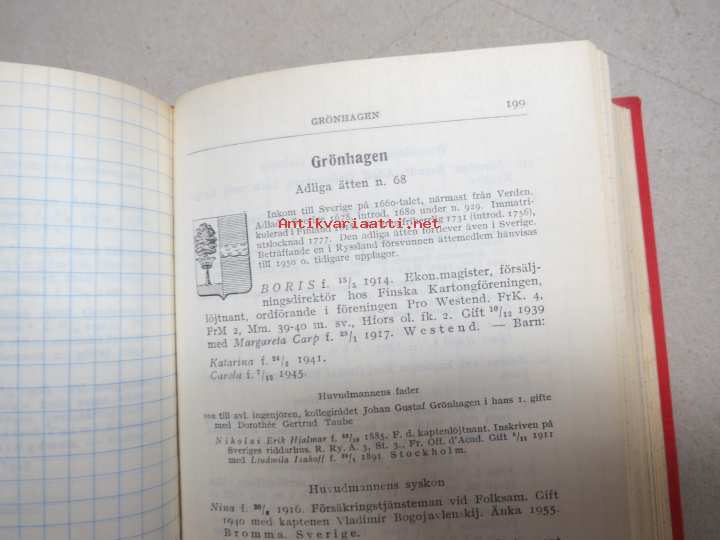 GRÖNHAGEN 199
Grönhagen
Adliga ätten n. 68
Inkom till Sverige på 1660-talet, närmast från Verden.
Adlad 1678, introd. 1680 under n. 929. Immatri-
kulerad i Finland 1731 (introd. 1756),
utslocknad 1777. Den adliga ätten fortlever även i Sverige.
Beträffande en i Ryssland försvunnen ättemedlem hänvisas
till 1950 o. tidigare upplagor.
Antikvariaatti.net
BORIS f. 1914. Ekon.magister, försälj-
ningsdirektör hos Finska Kartongföreningen,
löjtnant, ordförande i föreningen Pro Westend. FrK. 4,
FrM 2, Mm. 39-40 m. sv., Hfors ol. fk. 2. Gift 1939
med Margareta Carp f. 1917. Westend. — Barn:
Katarina f. 1941.
Carola f. 1945.
Huvudmannens fader
son till avl. ingenjören, kollegirådet Johan Gustaf Grönhagen i hans 1. gifte
med Dorothée Gertrud Taube
Nikolai Erik Hjalmar f. 1885. F. d. kaptenlöjtnant. Inskriven på
Sveriges riddarhus. R. Ry. A. 3, St. 3., Fr. Off. d'Acad. Gift 1911
med Liudmila Isakoff f. 1891. Stockholm.
Huvudmannens syskon
Nina f. 1916. Försäkringstjänsteman vid Folksam. Gift
1940 med kaptenen Vladimir Bogojavlenskij. Änka 1955.
Bromma. Sverige.